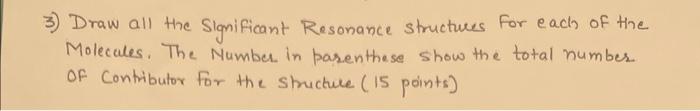 3) Draw all the Significant Resonance structures For each of the
Molecules. The Number in parenthese show the total number
OF Contributor for the structure (15 points)